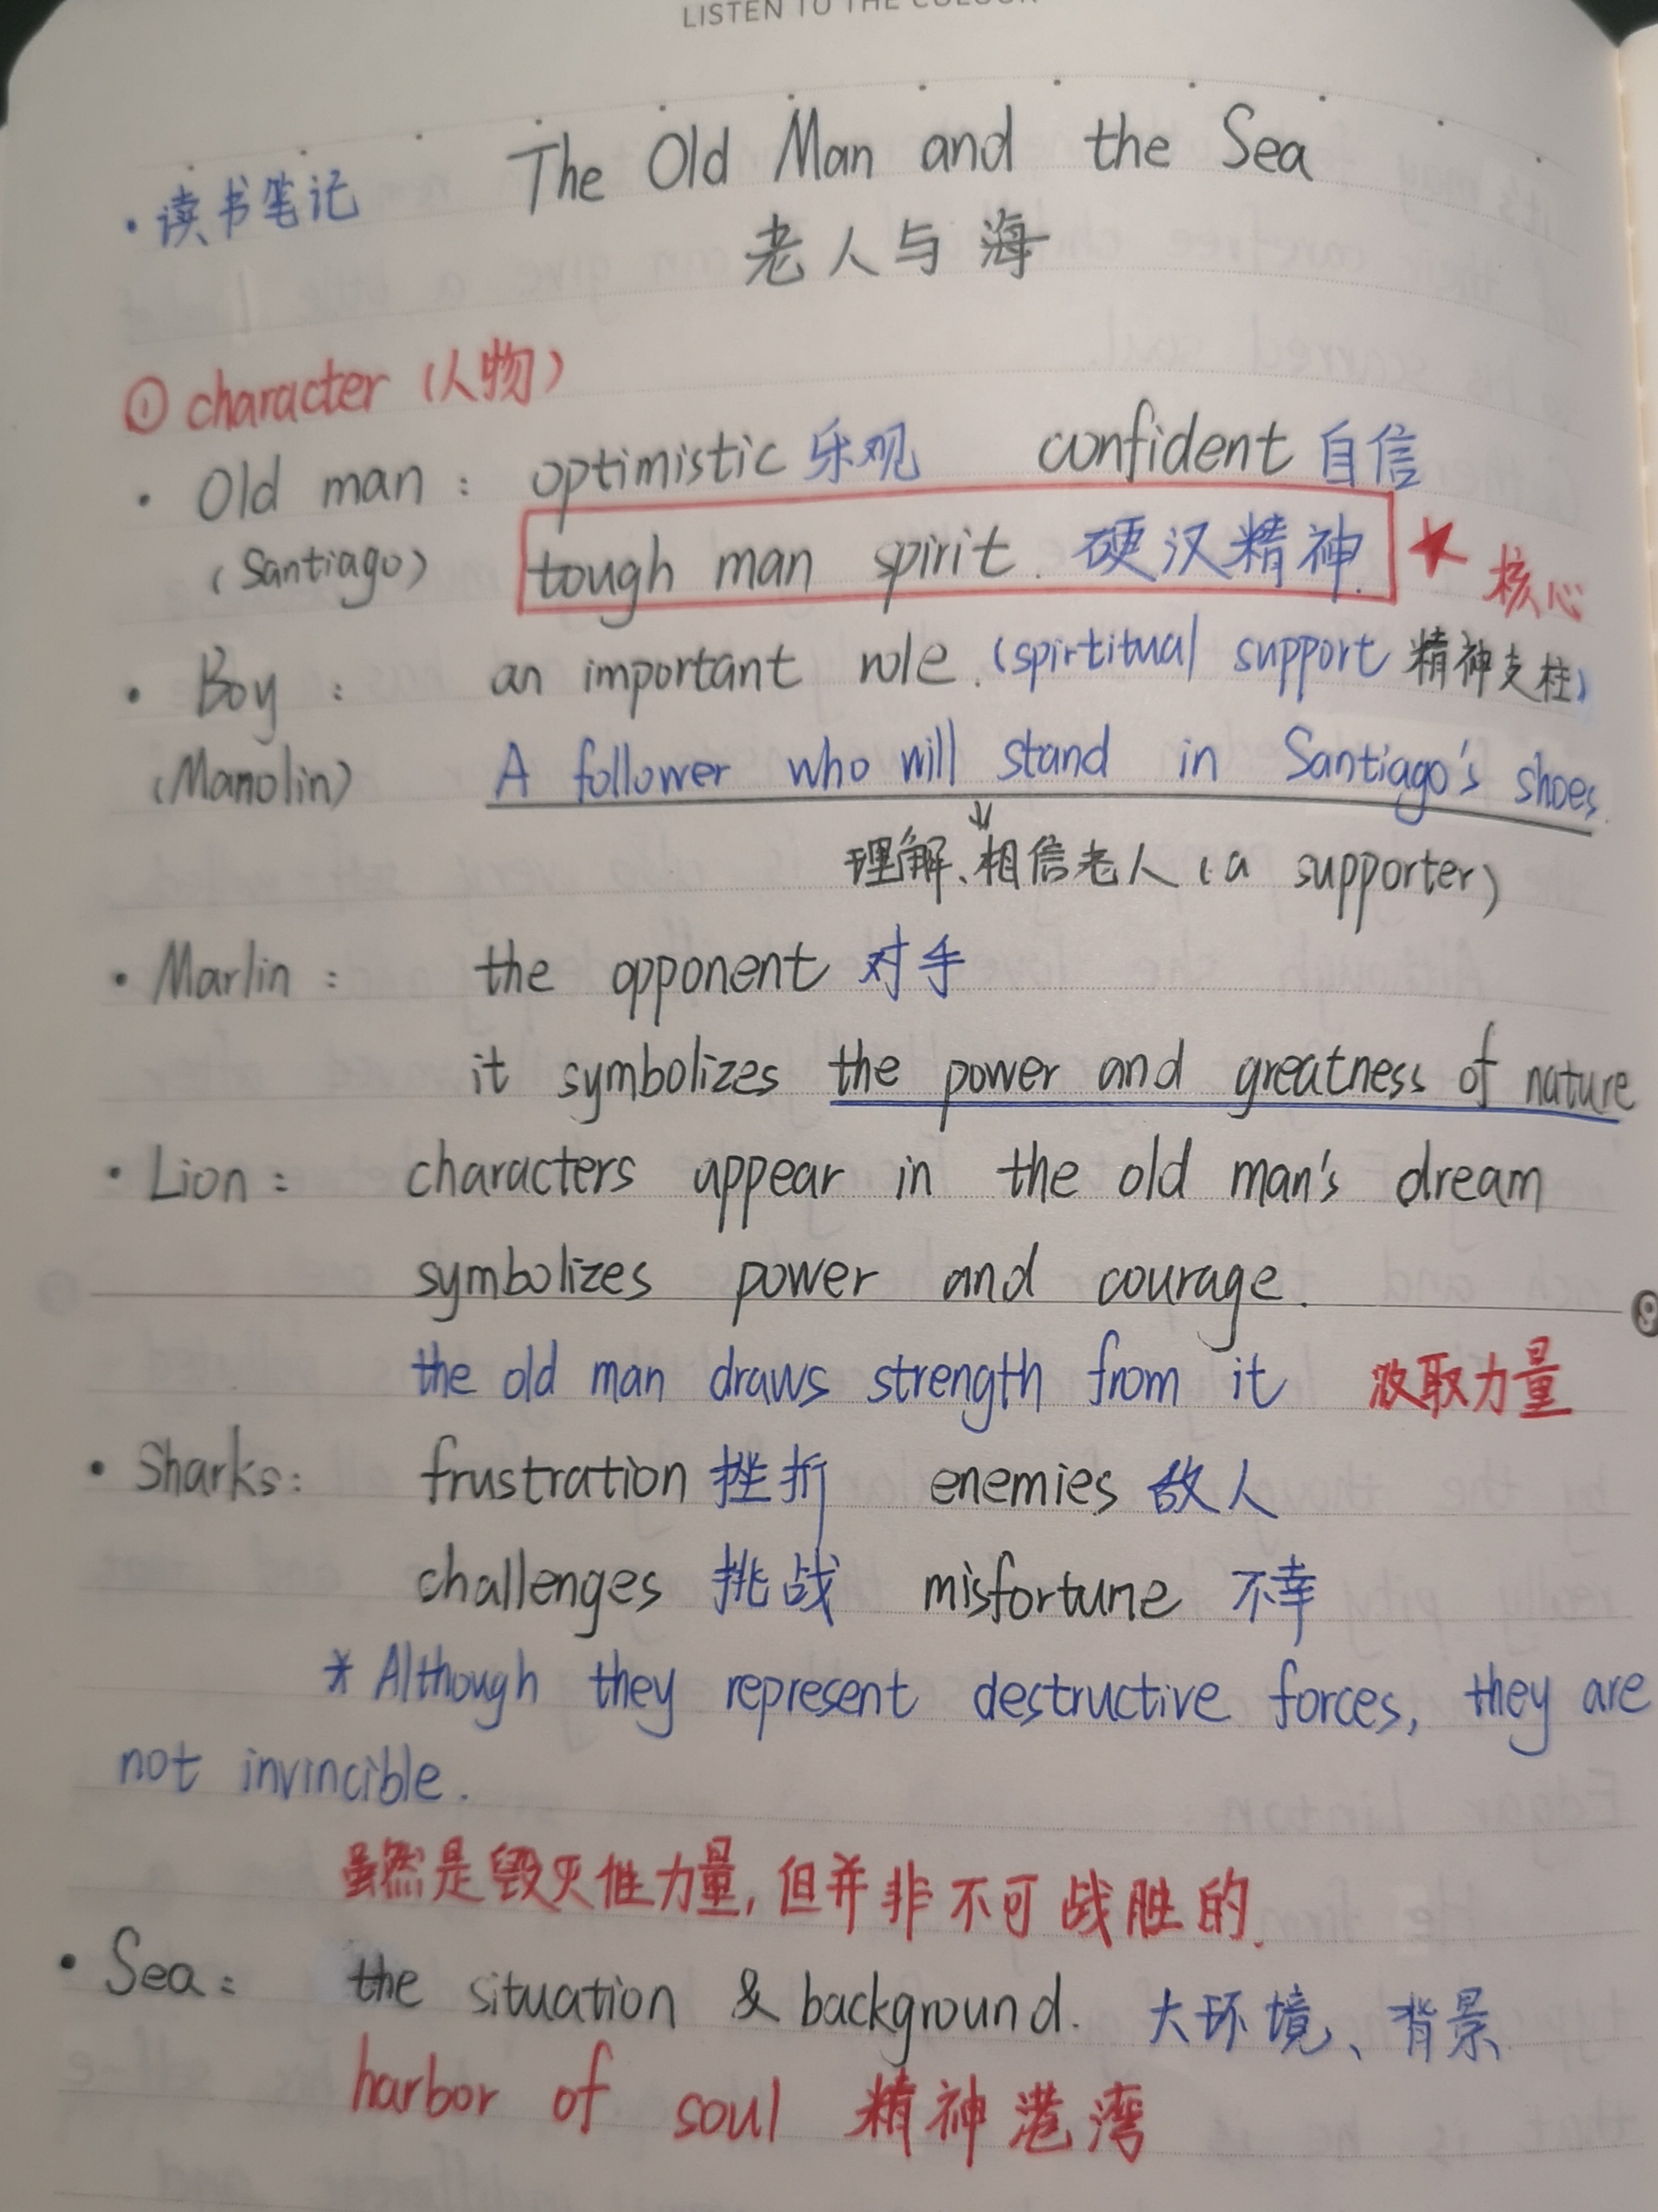 LISTEN TO THE COLOUR
·读书笔记 The Old Man and the Sea
老人与海
① character (人物)
· Old man : optimistic 乐观 confident 自信
(Santiago) tough man spirit. 硬汉精神. ★ 核心
· Boy : an important role. (spirtitual support 精神支柱)
(Manolin) A follower who will stand in Santiago's shoes.
理解、相信老人 (a supporter)
· Marlin : the opponent 对手
it symbolizes the power and greatness of nature
· Lion : characters appear in the old man's dream
symbolizes power and courage.
the old man draws strength from it 汲取力量
· Sharks: frustration 挫折 enemies 敌人
challenges 挑战 misfortune 不幸
* Although they represent destructive forces, they are
not invincible.
虽然是毁灭性力量,但并非不可战胜的.
· Sea : the situation & background. 大环境、背景
harbor of soul 精神港湾